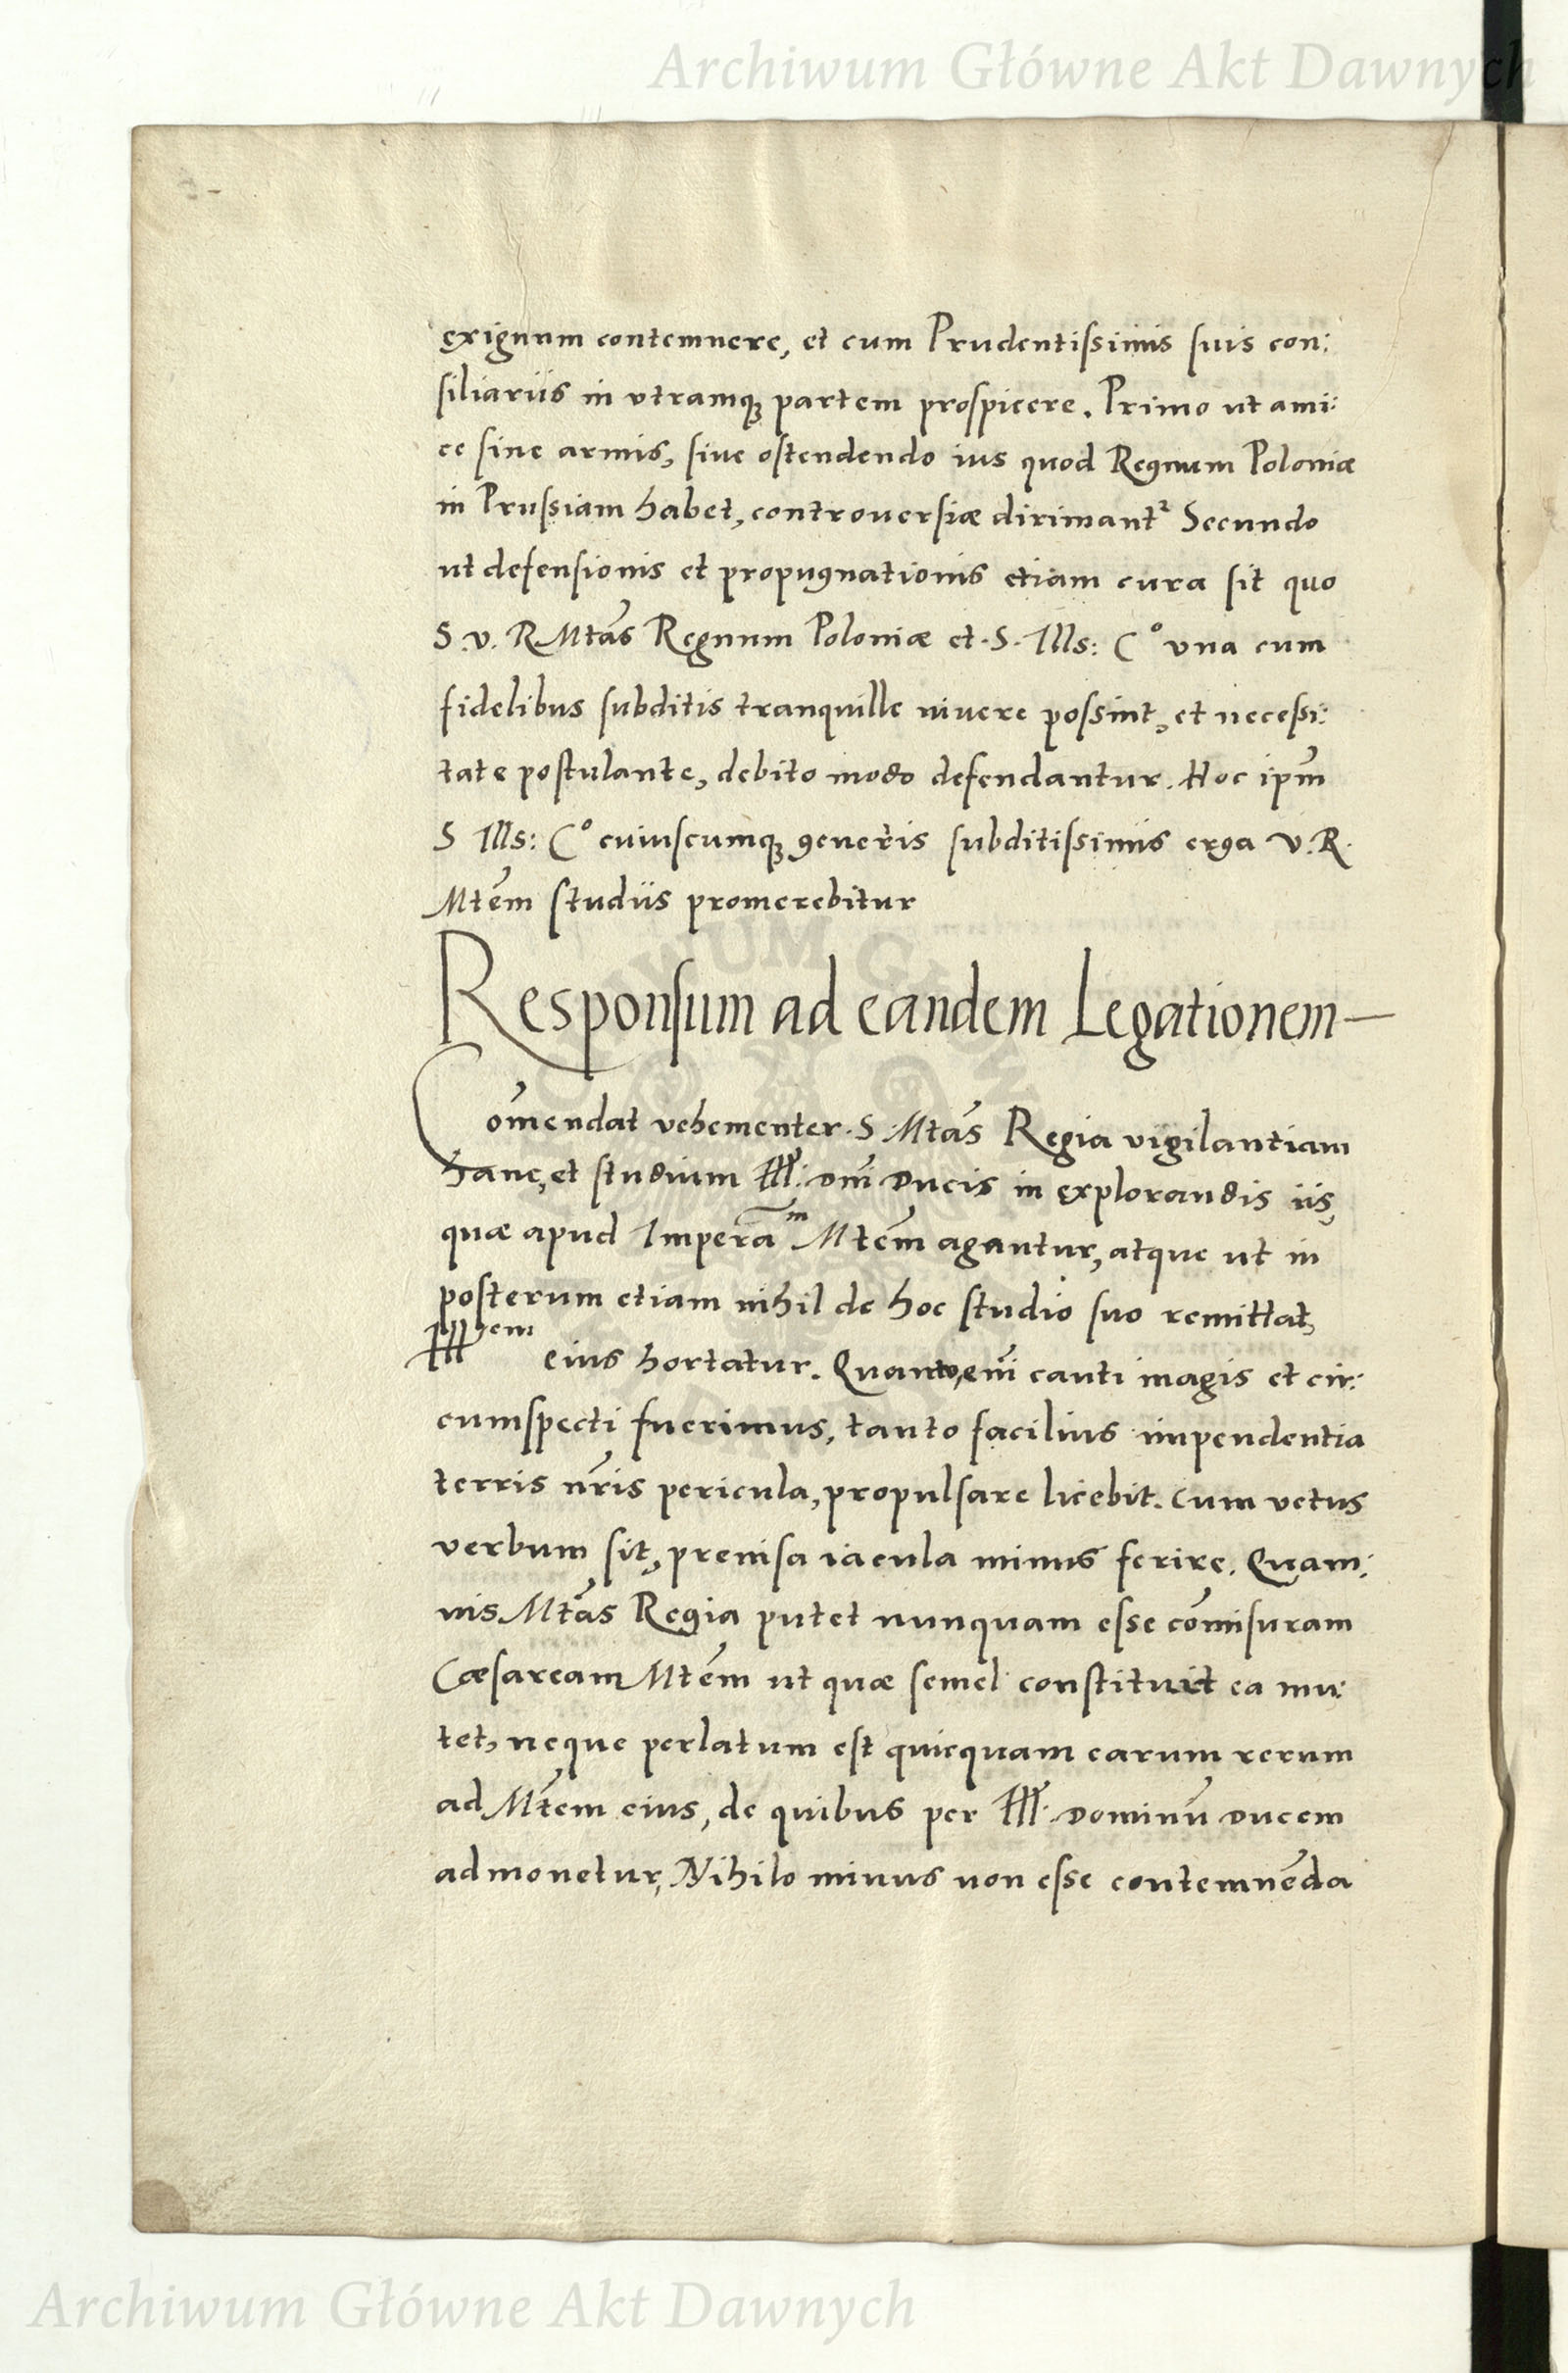 Archiwum Główne Akt Dawnych
exiguum contemnere, et cum Prudentissimis suis con:
siliariis in vtramq; partem prospicere. Primo ut ami:
ce sine armis, siue ostendendo ius quod Regnum Poloniæ
in Prussiam habet, controuersiæ dirimantr Secundo
ut defensionis et propugnationis etiam cura sit quo
S. v. R Mtãs Regnum Poloniæ et. S. Ills: Cº vna cum
fidelibus subditis tranquille uiuere possint, et necessi:
tate postulante, debito modo defendantur. Hoc ipm̃
S Ills: Cº cuiuscumq; generis subditissimis erga V. R.
Mtẽm studiis promerebitur
Responsum ad eandem Legationem—
Com̃endat vehementer. S. Mtãs Regia vigilantiam
hanc, et studium Ill: Dnĩ Ducis in explorandis iis,
quæ apud Imperãm Mtẽm agantur, atque ut in
posterum etiam nihil de hoc studio suo remittat,
Illem eius hortatur. Quanto, enĩ cauti magis et cir:
cumspecti fuerimus, tanto facilius impendentia
terris nr̃is pericula, propulsare licebit. Cum vetus
verbum sit, preuisa iacula minus ferire. Quam:
uis Mtãs Regia putet nunquam esse com̃isuram
Cæsaream Mtẽm ut quæ semel constituit ea mu:
tet, neque perlatum est quicquam earum rerum
ad Mt̃em eius, de quibus per Ill: Dominũ Ducem
admonetur, Nihilo minus non esse contemnẽda
Archiwum Główne Akt Dawnych